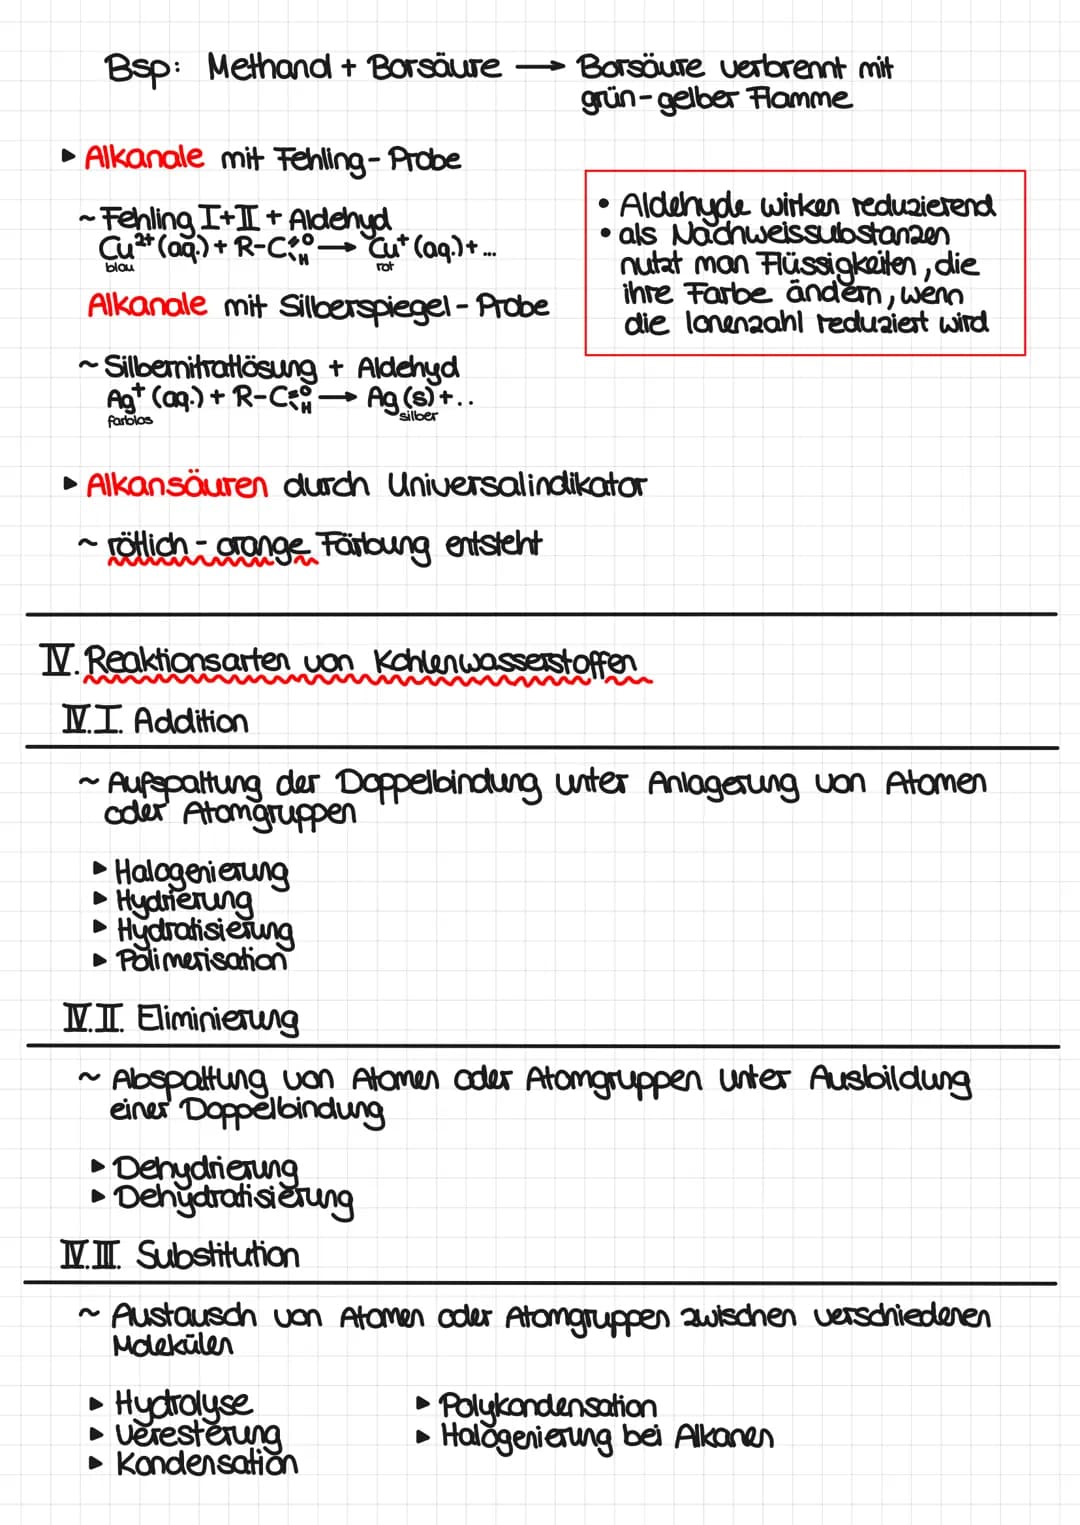 Bsp: Methanol + Borsäure → Borsäure verbrennt mit
grün-gelber Flamme
▸ Alkanale mit Fehling-Probe
~ Fehling I+II + Aldehyd
Cu²⁺(aq.) + R-C=O-H → Cu⁺(aq.)+...
blau rot
Alkanale mit Silberspiegel-Probe
~ Silbernitratlösung + Aldehyd
Ag⁺(aq.) + R-C=O-H → Ag(s)+..
farblos silber
• Aldehyde wirken reduzierend
• als Nachweissubstanzen
nutzt man Flüssigkeiten, die
ihre Farbe ändern, wenn
die Ionenzahl reduziert wird
▸ Alkansäuren durch Universalindikator
~ rötlich-orange Färbung entsteht
IV. Reaktionsarten von Kohlenwasserstoffen
IV.I. Addition
~ Aufspaltung der Doppelbindung unter Anlagerung von Atomen
oder Atomgruppen
▸ Halogenierung
▸ Hydrierung
▸ Hydratisierung
▸ Polimerisation
IV.II. Eliminierung
~ Abspaltung von Atomen oder Atomgruppen unter Ausbildung
einer Doppelbindung
▸ Dehydrierung
▸ Dehydratisierung
IV.III. Substitution
~ Austausch von Atomen oder Atomgruppen zwischen verschiedenen
Molekülen
▸ Hydrolyse
▸ Veresterung
▸ Kondensation
▸ Polykondensation
▸ Halogenierung bei Alkanen